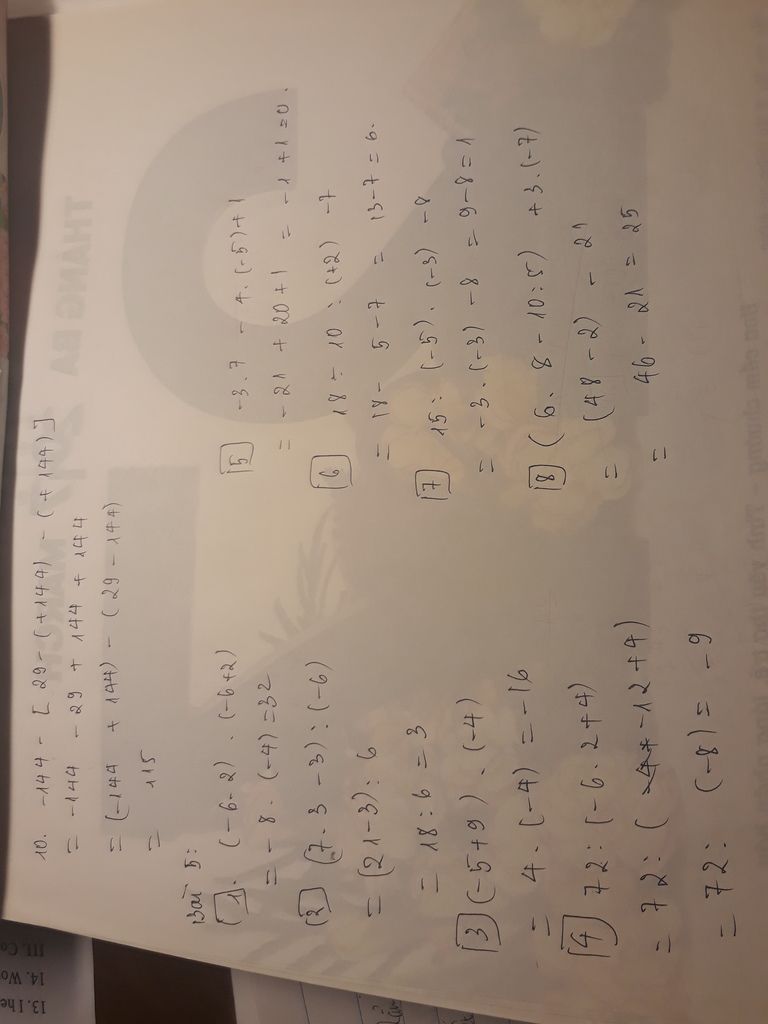 10. -144 - [ 29 - (+144) - (+144) ]
= -144 - 29 + 144 + 144
= (-144 + 144) - (29 - 144)
= 115
Bài 5:
1. (-6-2) . (-6+2)
= -8 . (-4) = 32
2 (7.3 - 3) : (-6)
= (21-3) : 6
= 18 : 6 = 3
3 (-5+9) . (-4)
= 4 . (-4) = -16
4 72 : (-6.2+4)
= 72 : ( -12+4)
= 72 : (-8) = -9
5 -3.7 - 4.(-5)+1
= -21 + 20+1 = -1+1=0.
6 18 - 10 : (+2) -7
= 18 - 5 - 7 = 13-7 = 6.
7 15 : (-5) . (-3) - 8
= -3.(-3) - 8 = 9-8=1
8 (6.8 - 10:5) + 3.(-7)
= (48 - 2) - 21
= 46 - 21 = 25
THÁNG BA
13. The
14. Wo
III. Co